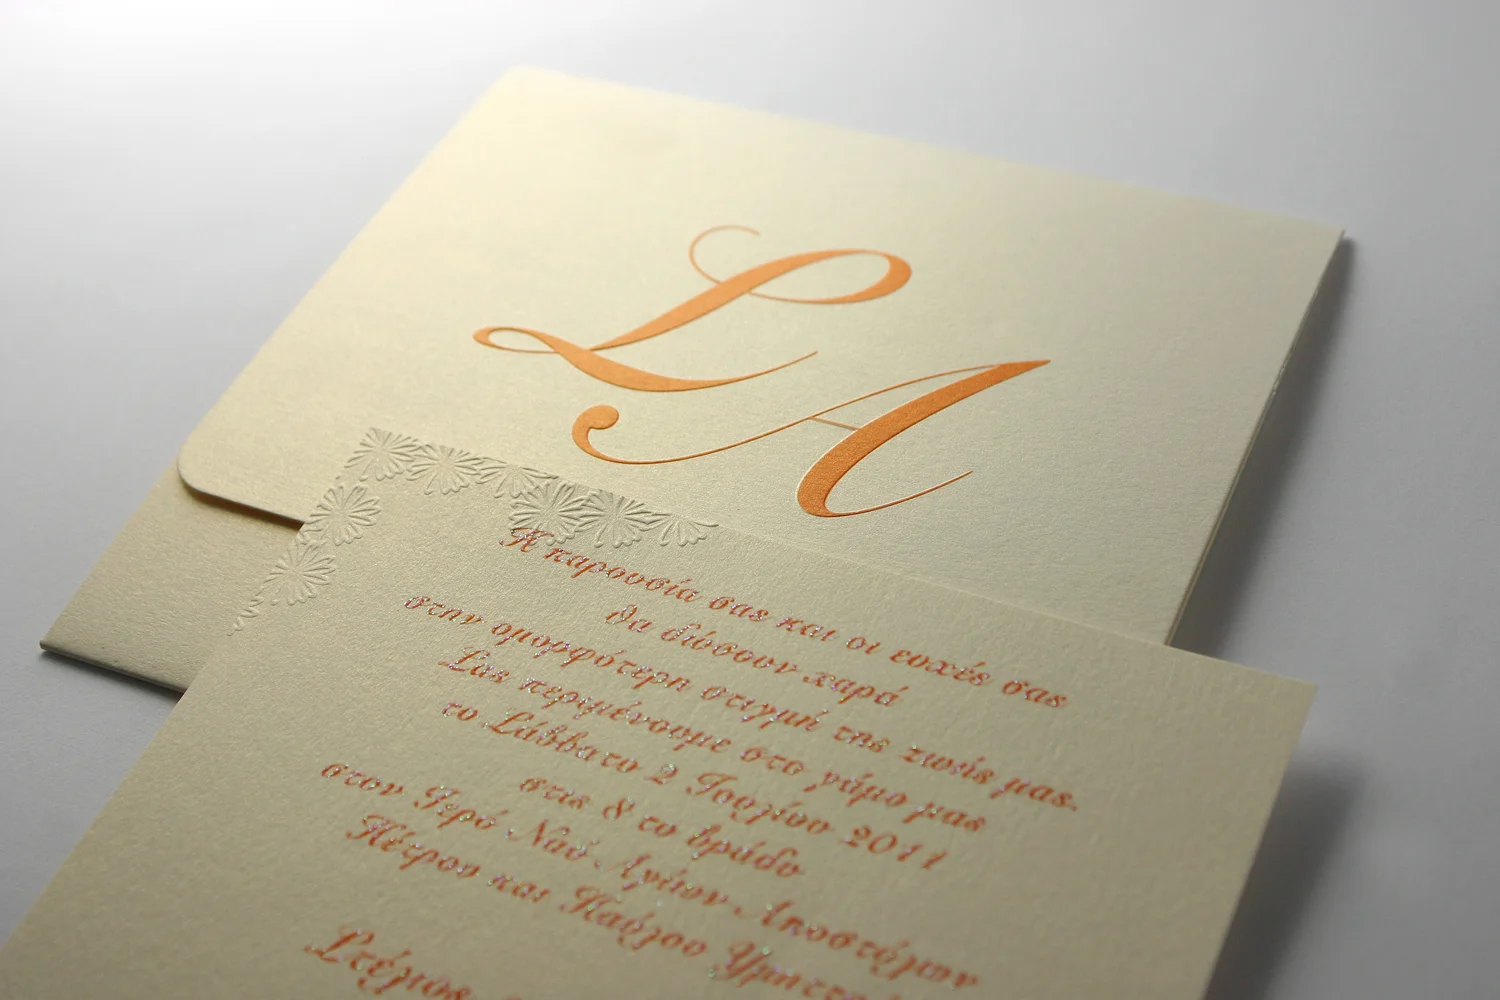 L A
Η παρουσία σας και οι ευχές σας
θα δώσουν χαρά
στην ομορφότερη στιγμή της ζωής μας.
Σας περιμένουμε στο γάμο μας
το Σάββατο 2 Ιουλίου 2011
στις 8 το βράδυ
στον Ιερό Ναό Αγίων Αποστόλων
Πέτρου και Παύλου
Στέλιος